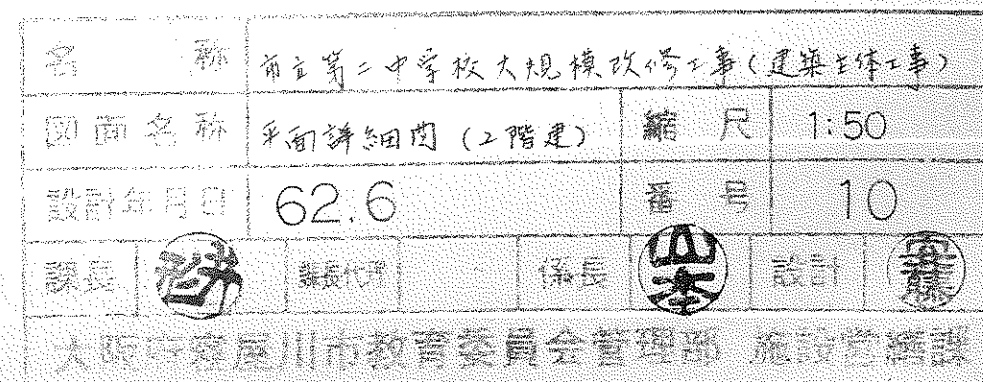 名称 市立第二中学校大規模改修工事(建築主体工事)
図面名称 平面詳細図 (2階建) 縮尺 1:50
設計年月日 62.6 番号 10
課長 課長代理 係長 山本 設計 安藤
大阪府寝屋川市教育委員会管理部 施設営繕課